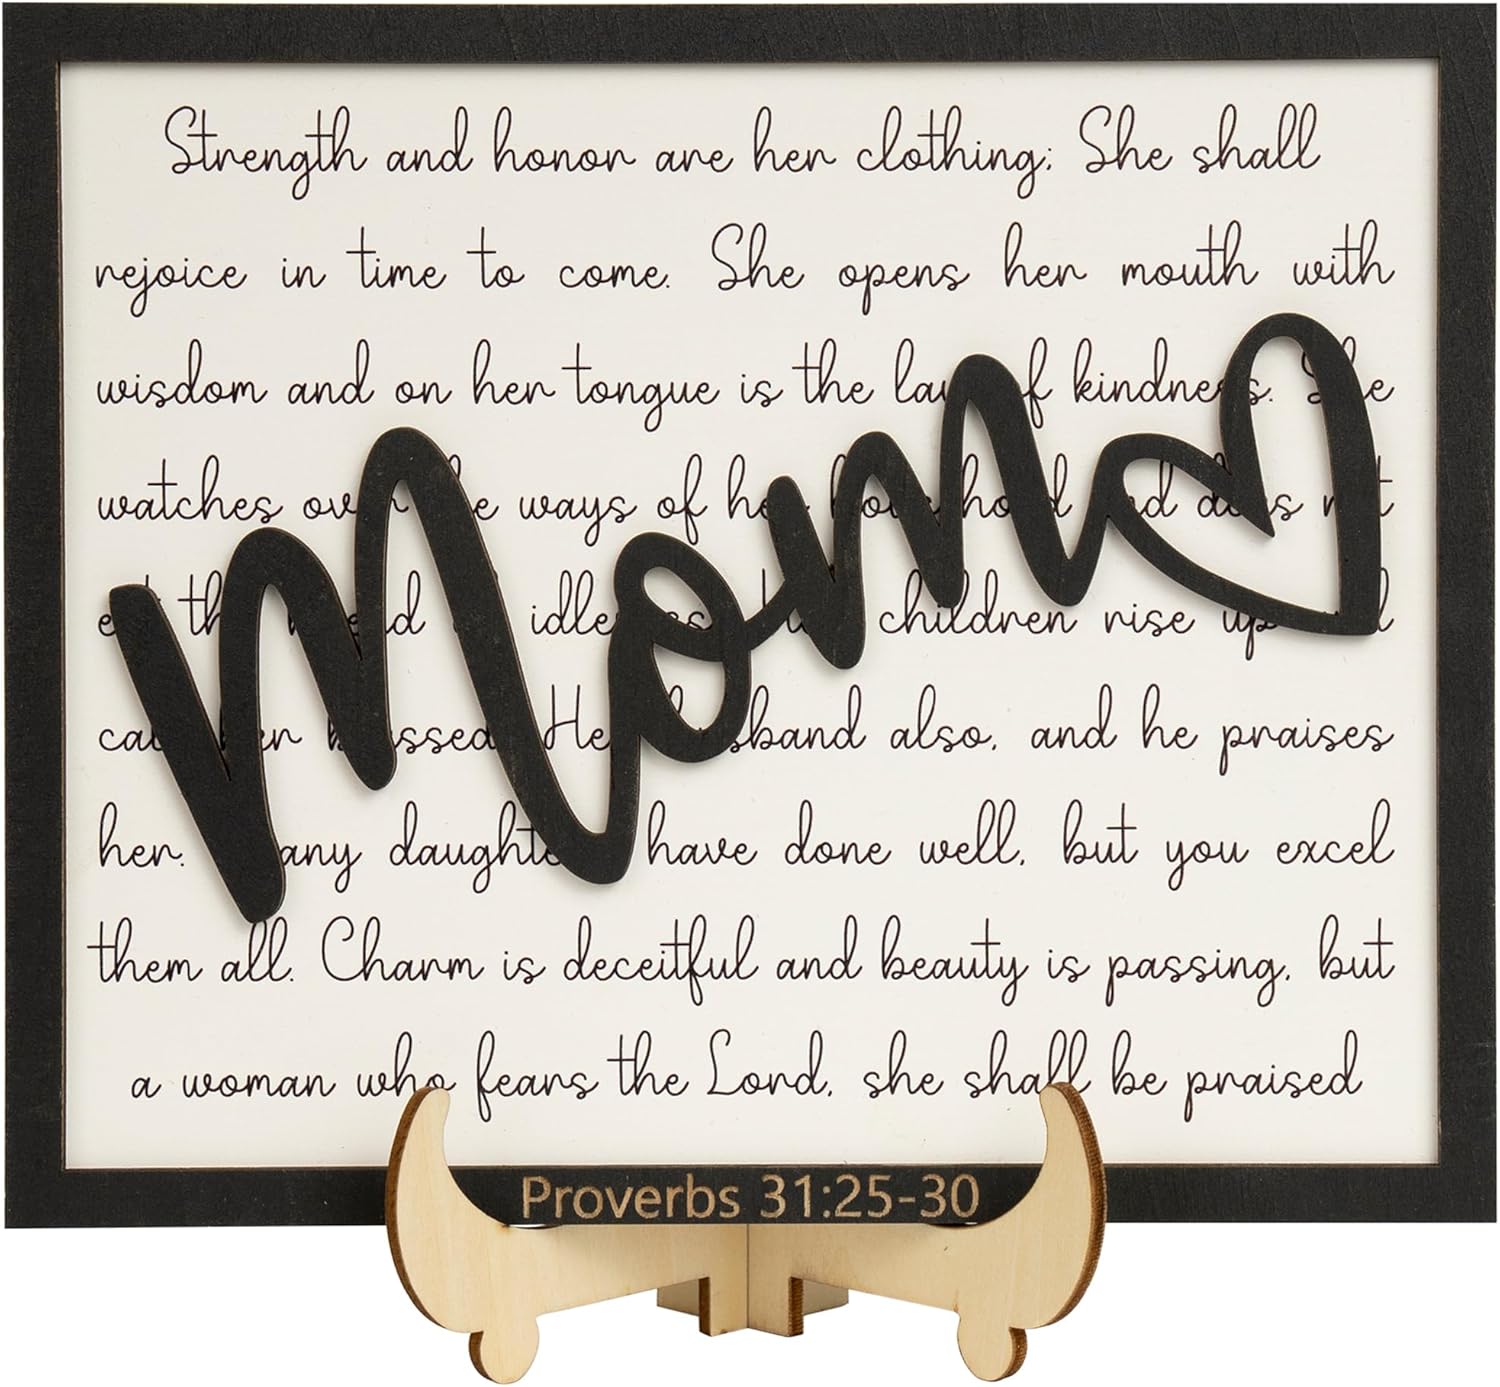 Strength and honor are her clothing; She shall
rejoice in time to come. She opens her mouth with
wisdom and on her tongue is the law of kindness. She
watches over the ways of her household and does not
eat the bread of idleness. Her children rise up and
call her blessed. Her husband also, and he praises
her. Many daughters have done well, but you excel
them all. Charm is deceitful and beauty is passing, but
a woman who fears the Lord, she shall be praised
Mom
Proverbs 31:25-30